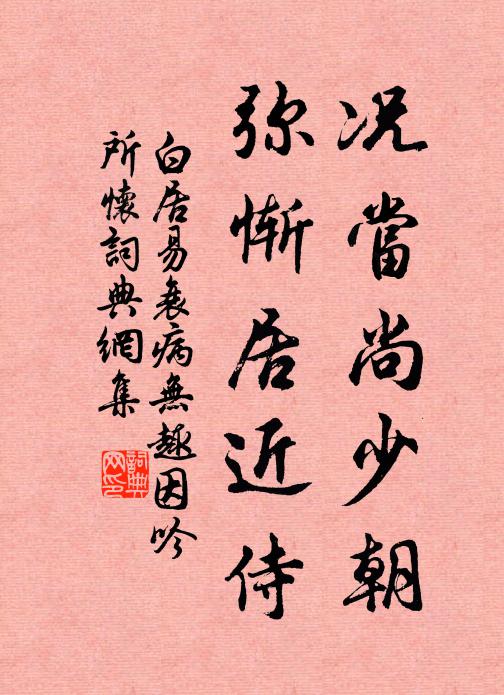 况當尚少朝
弥慚居近侍
白居易衰病無趣因吟
所懷詞典網集
詞典
网印